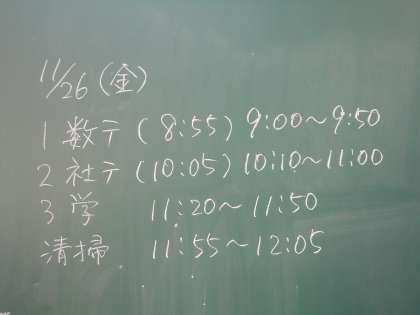 11/26(金)
1 数テ(8:55) 9:00～9:50
2 社テ(10:05) 10:10～11:00
3 学 11:20～11:50
清掃 11:55～12:05